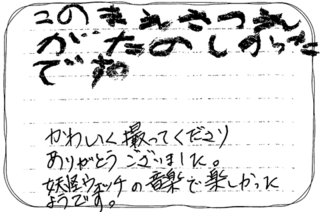 このまえさつえい
がたのしかった
です
かわいく撮ってくださり
ありがとうございました。
妖怪ウォッチの音楽で楽しかった
ようです。